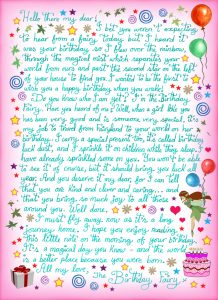 Hello there my dear!
I bet you weren't expecting
to hear from a fairy today, but I heard it
was your birthday, so I flew over the rainbow,
through the magical mist which separates your
world from ours and past the second star on the left
of your house to find you. I wanted to be the first to
wish you a happy birthday when you woke!
Do you know who I am yet? I'm the Birthday
Fairy, you may have heard of me. Well, when a girl like you
has been very good and is someone very special, it's
my job to travel from fairyland to your world on her
birthday. I carry a special present too. It's called birthday
luck dust, and I sprinkle it on children while they sleep. I
have already sprinkled some on you. You won't be able
to see it of course, but it should bring you luck all
year. And you deserve it my dear, for I can tell
that you are kind and clever and caring... and
that you bring so much joy to all those
around you. Well done.
I must fly away now as it's a long
journey home. I hope you enjoy reading
this little note on the morning of your birthday.
It's a magical day you know - and the world
is a better place because you were born.
All my love,
The Birthday Fairy